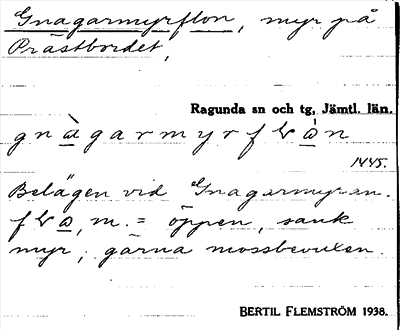 Gnagarmyrflon, myr på
Prästbordet,
Ragunda sn och tg, Jämtl. län.
gnàgarmyrfɫω̇n
1445.
Belägen vid Gnagarmyran.
fɫω, m. = öppen, sank
myr, gärna mossbevuxen.
BERTIL FLEMSTRÖM 1938.